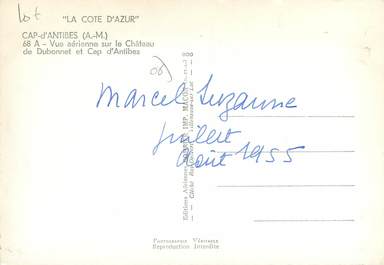 lot
"LA COTE D'AZUR"
CAP-d'ANTIBES (A.-M.)
68 A - Vue aérienne sur le Château
de Dubonnet et Cap d'Antibes
(06)
Marcel Suzanne
Juillet
Août 1955
Editions Aériennes IMP. MACON
Cliché
Photographie Véritable
Reproduction Interdite